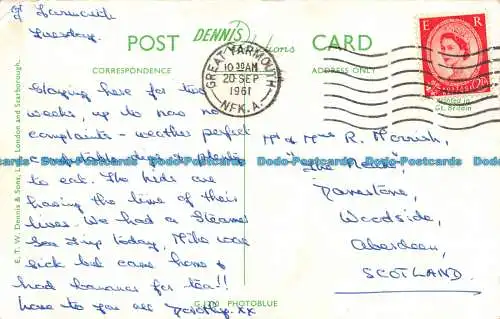 Gt Yarmouth
Tuesday.
POST
DENNIS
CARD
CORRESPONDENCE
ADDRESS ONLY
GREAT YARMOUTH
10 30AM
20 SEP
1961
NFK. A.
E R
Printed in
Gt. Britain
Staying here for two
weeks, up to now no
complaints - weather perfect
comfortable digs & plenty
to eat. The kids are
having the time of their
lives. We had a Steamer
Sea Trip today, Mike was
sick but came home &
had bananas for tea!!
love to you all XX
Mr & Mrs R.
"The
Woodside,
Aberdeen,
SCOTLAND.
E. T. W. Dennis & Sons, Ltd., London and Scarborough.
G.1200 PHOTOBLUE
Dodo-Postcards Dodo-Postcards Dodo-Postcards Dodo-Postcards